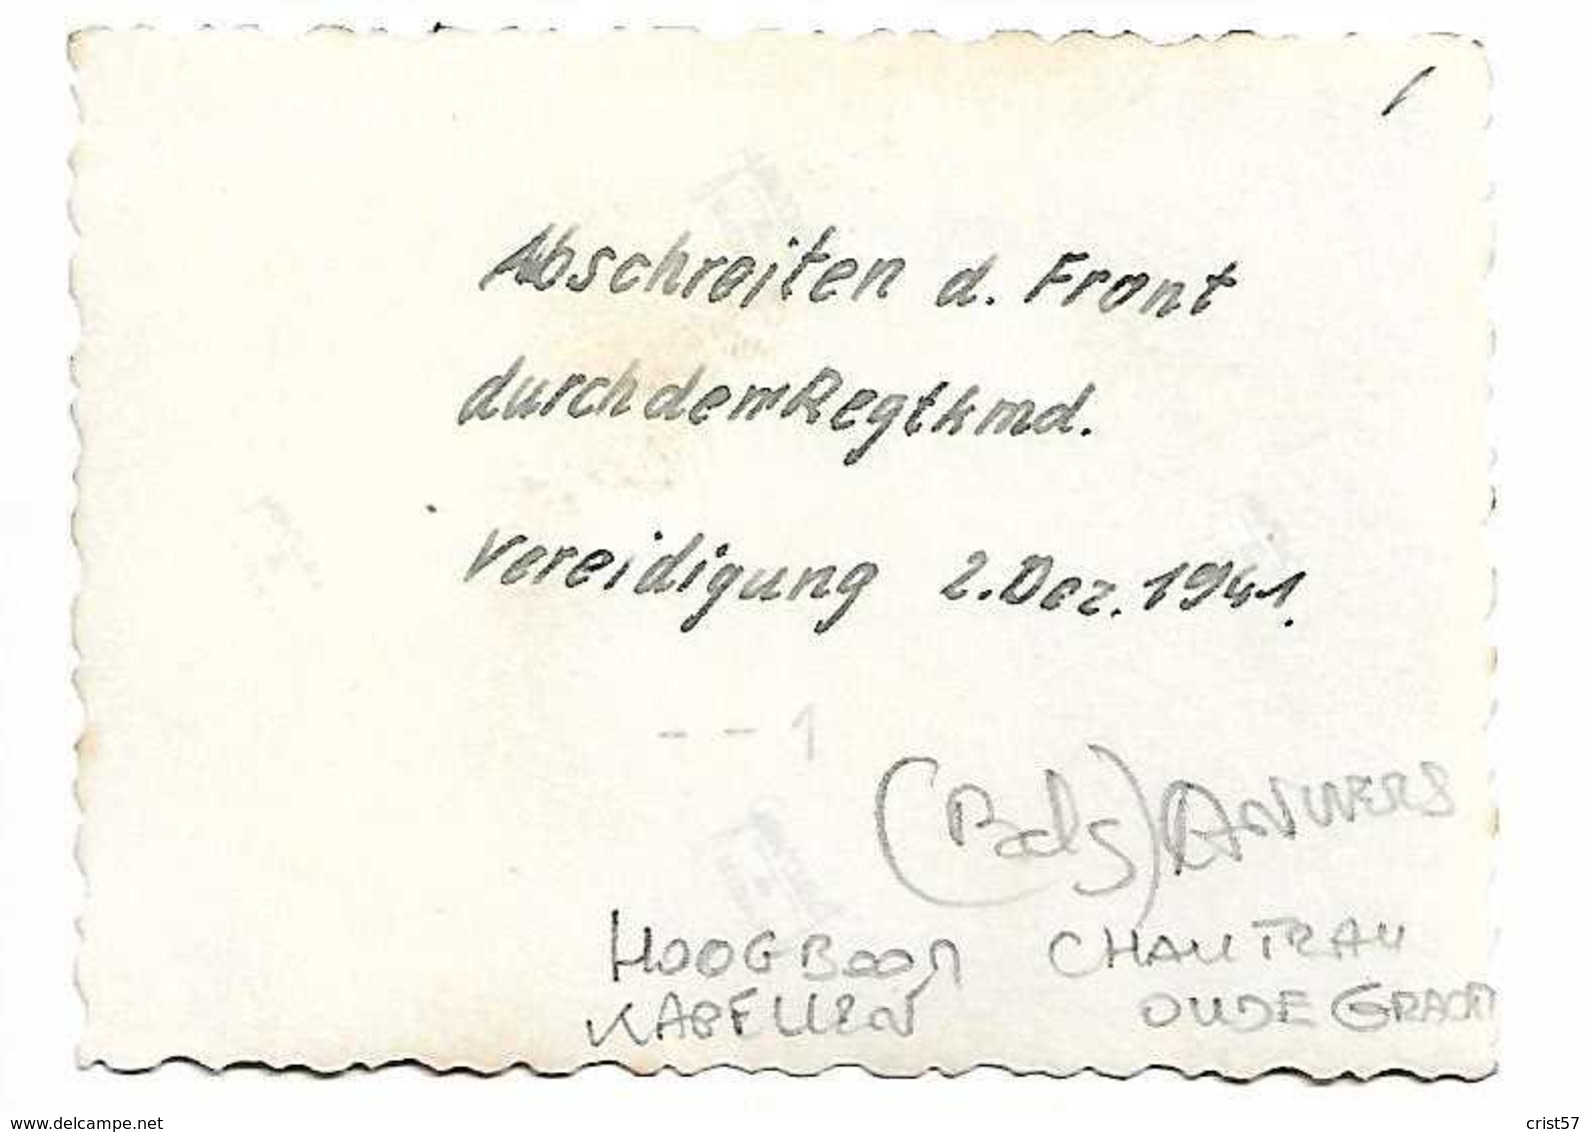 Abschreiten d. Front
durch dem Regtkmd.
Vereidigung 2. Dez. 1941.
-- 1
ANVERS
HOOGBOOM
KAPELLEN
OUDE GRACHT
www.delcampe.net
crist57